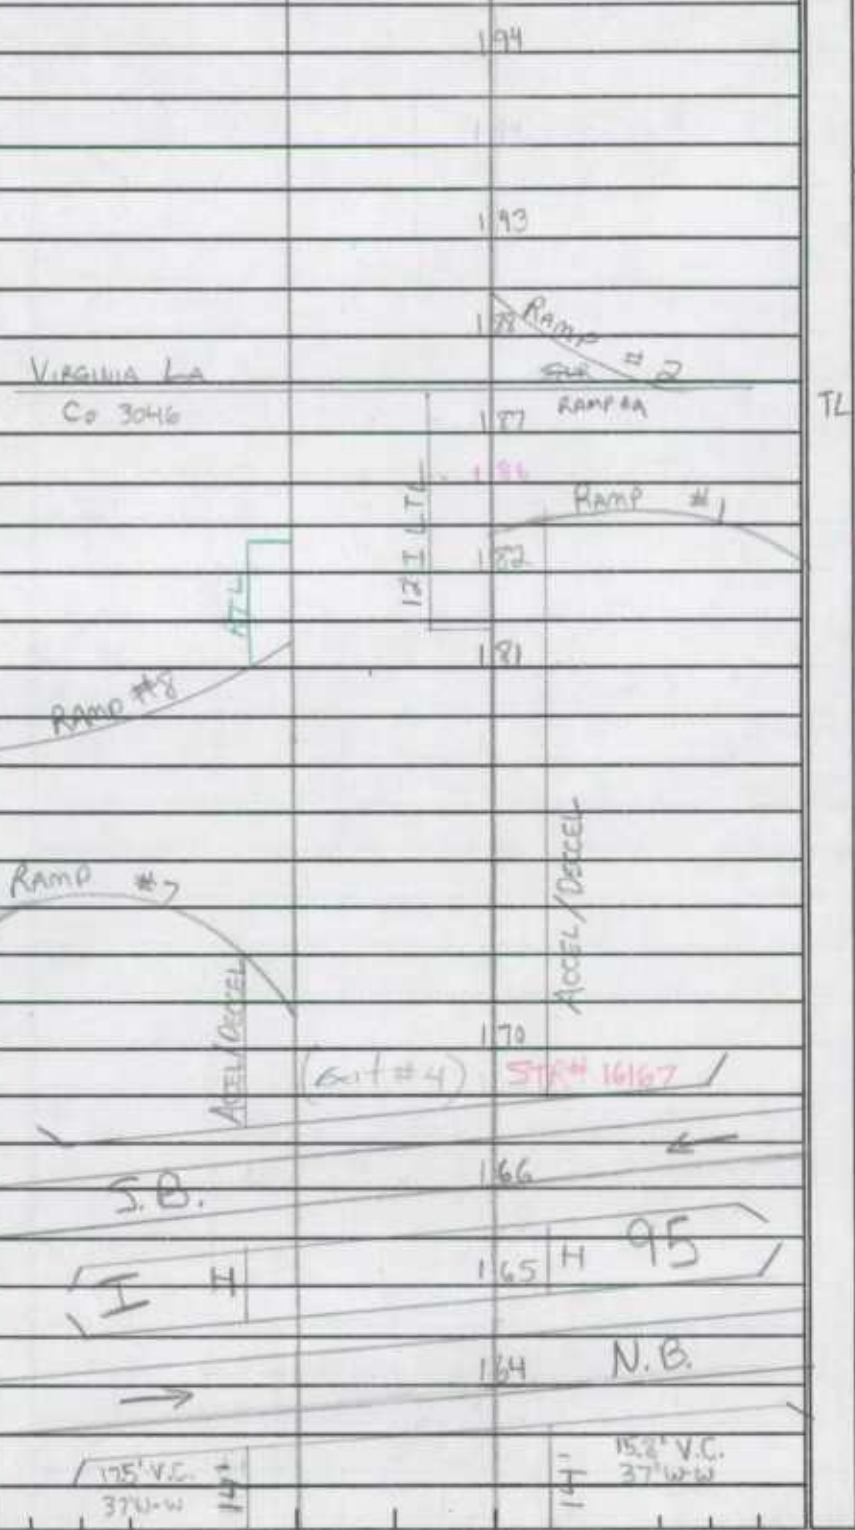 1.94
1.94
1.93
1.88
RAMP # 2
VIRGINIA LA
Co 3046
RAMP 8A
TL
1.87
1.86
RAMP #1
12' I LTL
1.82
RTL
1.81
RAMP #8
RAMP #7
ACCEL/DECCEL
ACCEL/DECCEL
1.70
(Exit #4) STR# 16167
1.66
S.B.
I H
1.65 H 95
1.64 N.B.
17.5' V.C.
37' W-W
14'
14'
15.8' V.C.
37' W-W